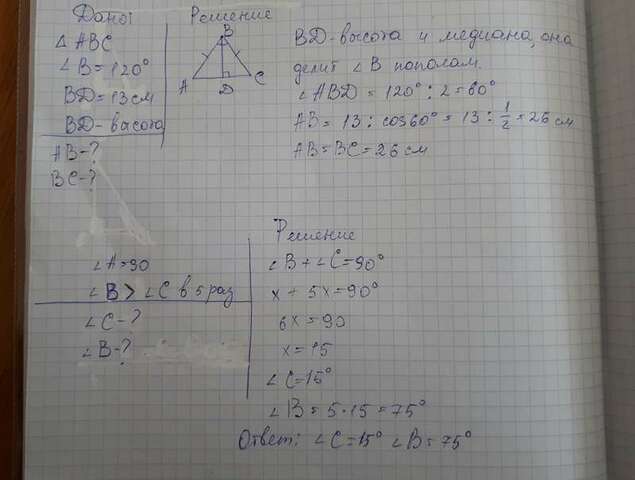 Дано: Решение
△ ABC
∠ B = 120°
BD = 13 см
BD - высота
AB - ?
BC - ?
B
A
D
C
BD - высота и медиана, она
делит ∠ B пополам.
∠ ABD = 120° : 2 = 60°
AB = 13 : cos 60° = 13 : 1/2 = 26 см
AB = BC = 26 см
∠ A = 90
∠ B > ∠ C в 5 раз
∠ C - ?
∠ B - ?
Решение
∠ B + ∠ C = 90°
x + 5x = 90°
6x = 90
x = 15
∠ C = 15°
∠ B = 5 · 15 = 75°
Ответ: ∠ C = 15° ∠ B = 75°